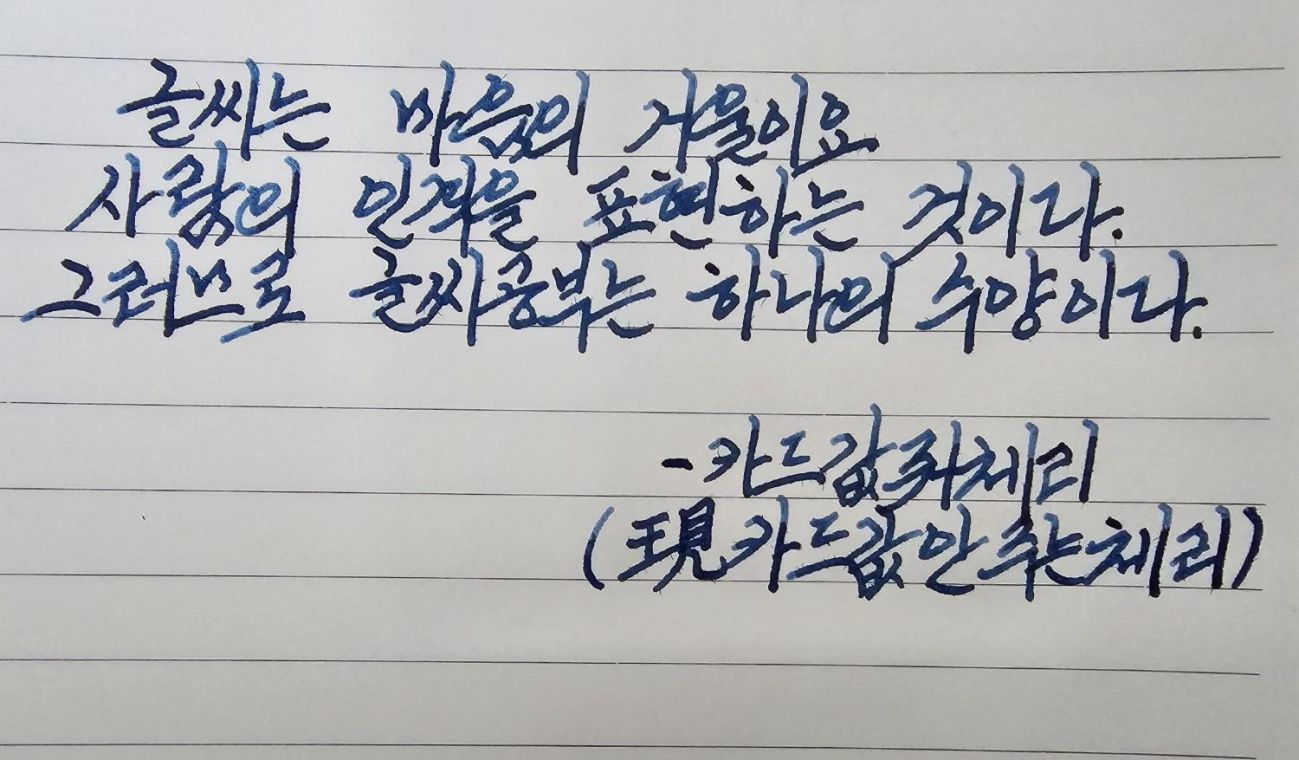 글씨는 마음의 거울이요
사람의 인격을 표현하는 것이다.
그러므로 글씨공부는 하나의 수양이다.
-카드값줘체리
(現카드값안주는체리)